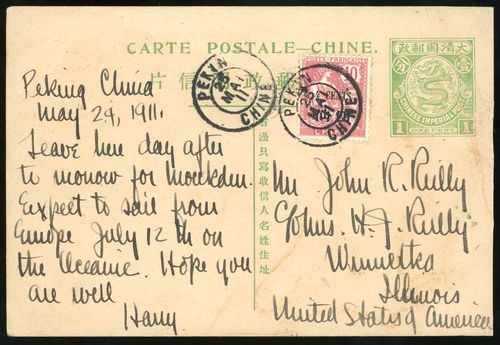 CARTE POSTALE–CHINE.
大清國郵政
壹
分
CHINESE IMPERIAL POST
1 ONE CENT 1
片 信 政 郵
PEKIN
CHINE
PEKIN
CHINE
10
祗寫收信人名姓住址
Peking China
May 29, 1911.
Leave here day after
to morrow for Moukden.
Expect to sail from
Europe July 12th on
the Oceanic. Hope you
are well
Harry
Mr John R. Reilly
C/o Mrs. H. J. Reilly
Winnetka
Illinois
United States of America